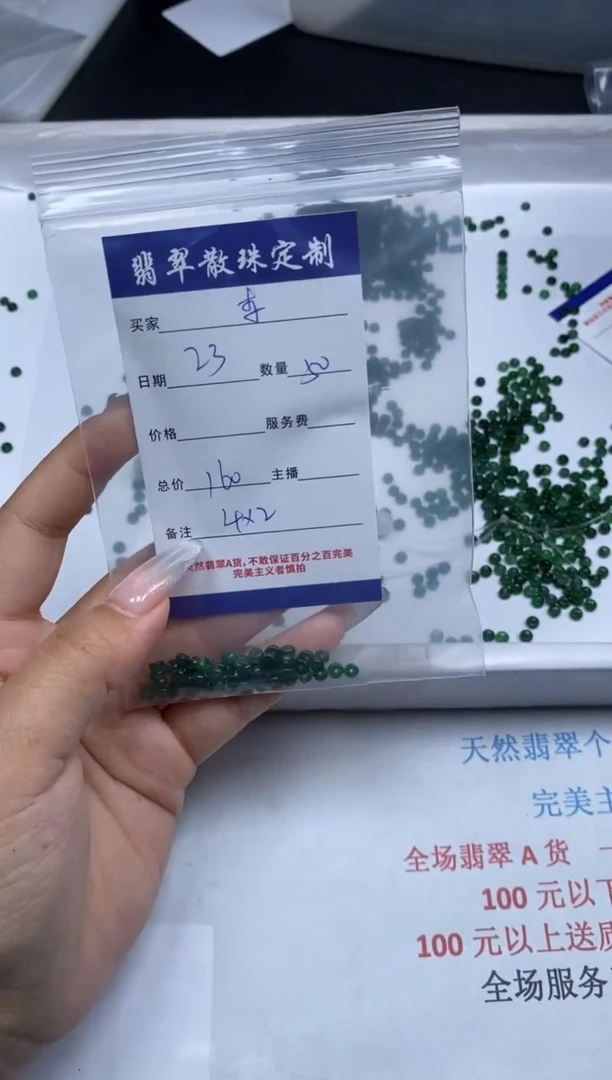 翡翠散珠定制
买家
日期 23 数量 50
价格 服务费
总价 160 主播
备注 4×2
然翡翠A货,不敢保证百分之百完美
完美主义者慎拍
天然翡翠个
完美主
全场翡翠 A 货 一
100 元以下
100 元以上送质
全场服务